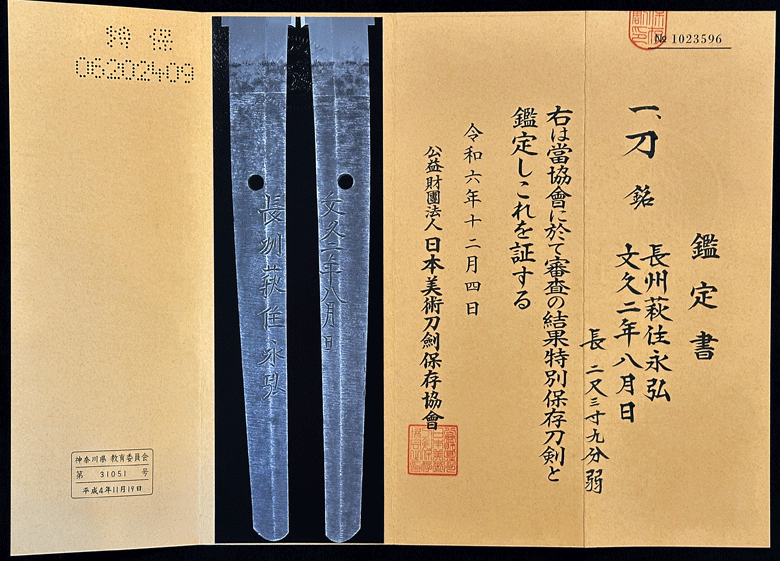 № 1023596
鑑定書
一、刀 銘 長州萩住永弘
文久二年八月日
長 二尺三寸九分弱
右は當協會に於て審査の結果特別保存刀剣と
鑑定しこれを証する
令和六年十二月四日
公益財團法人 日本美術刀劍保存協會
文久二年八月日
長州萩住永弘
特保
06202409
神奈川県 教育委員会
第 31051 号
平成4年11月19日